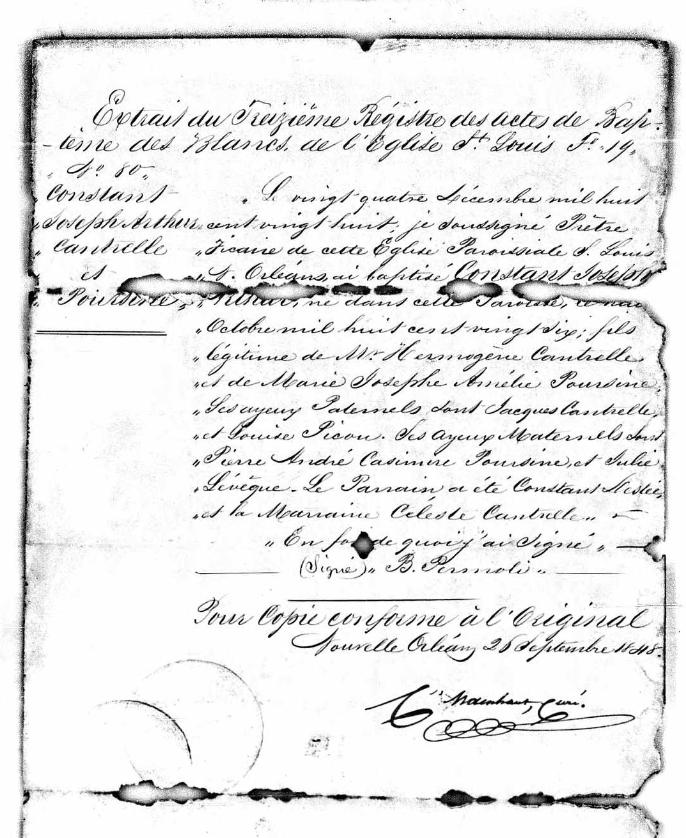 Extrait du Treizième Régistre des actes de Bap-
-tème des Blancs de l'Eglise St. Louis Fo. 19.
No. 80
Constant
Joseph Arthur
Cantrelle
et
Poursine
„ Le vingt quatre Décembre mil huit
„ cent vingt huit, je soussigné Prêtre
„ Vicaire de cette Eglise Paroissiale S. Louis
„ N. Orléans, ai baptisé Constant Joseph
„ Arthur, né dans cette Paroisse,
„ Octobre mil huit cent vingt six; fils
„ légitime de Mr. Hermogène Cantrelle
„ et de Marie Josephe Amélie Poursine,
„ Ses ayeux Paternels sont Jacques Cantrelle,
„ et Louise Picou. Ses ayeux Maternels sont
„ Pierre André Casimire Poursine, et Julie
„ Lévêque. Le Parrain a été Constant
„ et la Marraine Céleste Cantrelle. „
„ En foi de quoi j'ai Signé „
(Signé) „ B. Permoli „
Pour Copie conforme à l'Original
Nouvelle Orléans, 26 Septembre 1848.
Cs. Maenhaut, Curé.